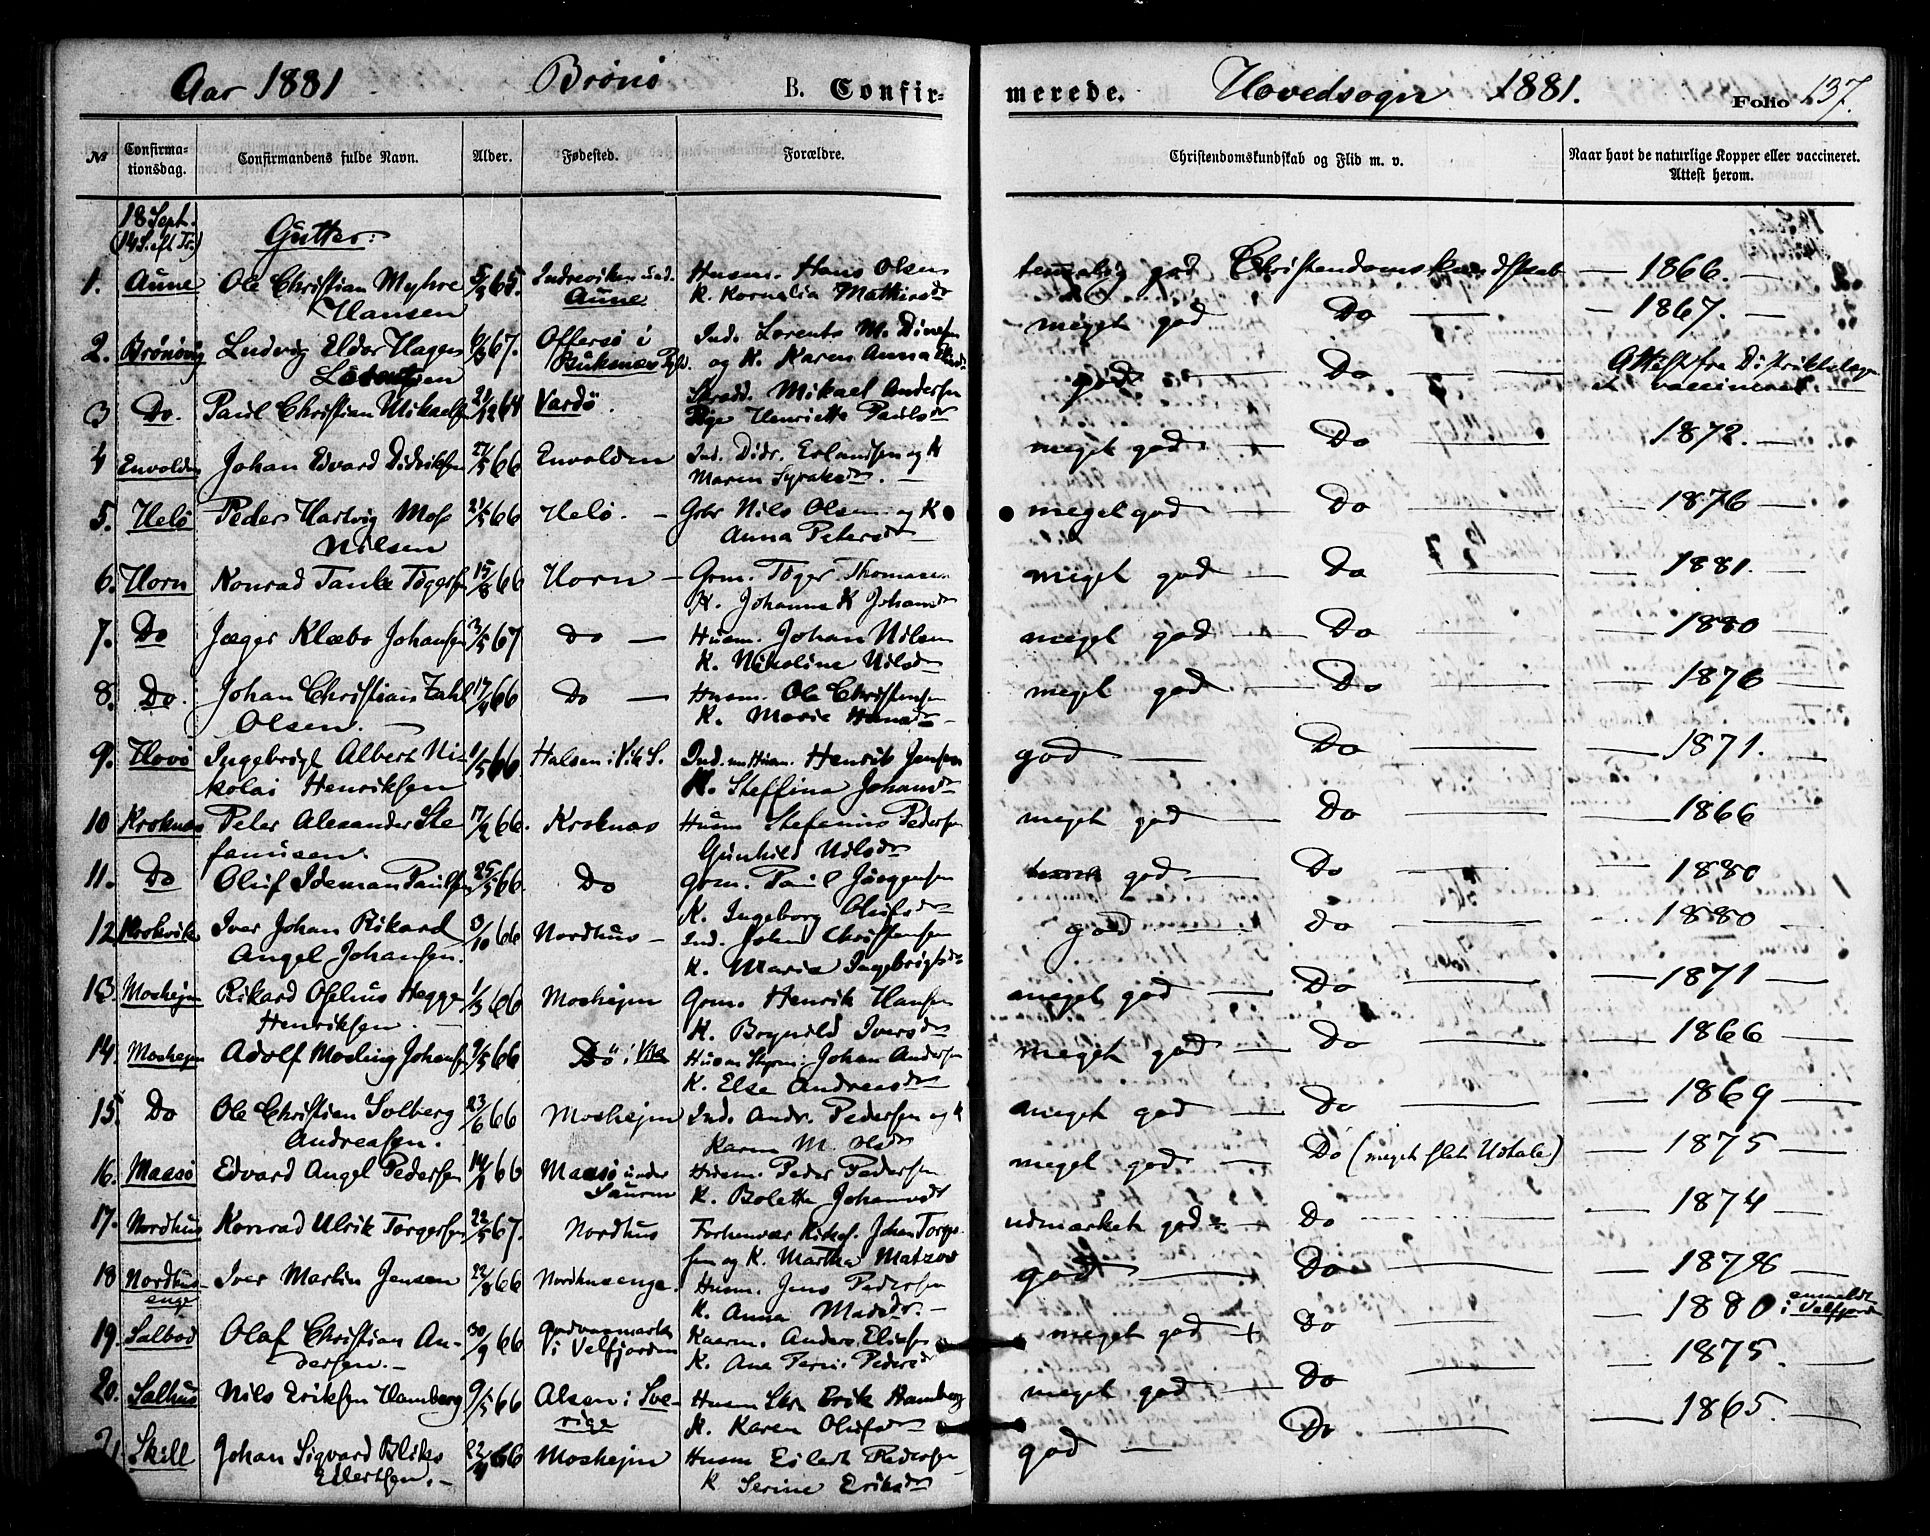 Aar 1881 Brønø B. Confir-
merede. Hovedsogn 1881. Folio 137.
No Confirmationsdag. Confirmandens fulde Navn. Alder. Fødested. Forældre.
Christendomskundskab og Flid m. v. Naar havt de naturlige Kopper eller vaccineret. Attest herom.
18 Sept.
(14 S. eft Tr.) Gutter:
1. Aune Ole Christian Myhre 5/5 65. Indreviken und. Husm. Hans Olsen
Hansen Aune K. Kornelia Mathiasdr
temmelig god Christendomskundskab — 1866. —
2. Brønøvig Ludvig Eldor Hagen 67. Offersø i Ind. Lorents M.
Lorentsen Buksnæs Pgld. og K. Karen Anna
meget god Do — 1867. —
3 Do. Paul Christian Mikaelsen 21/12 64 Vardø. Skrædd. Mikael Andersen
Pige Henriette Paulsdr
god — Do — Attest fra Distriktslægen
vaccineret.
4 Envolden Johan Edvard Didriksen 27/5 66 Envolden Ind. Didr. Erlandsen og K
Maren Syraksdr. —
meget god — Do — 1872. —
5. Helø Peder Hartvig Moss 21/5 66 Helø. — Grbr Nils Olsen og K
Nilsen Anna Petersdr
meget god — Do — 1876 —
6. Horn Konrad Tanke Tøgersen 15/8 66 Horn — Grm. Tøger Thomasen
K. Johanna K Johansdr
meget god — Do — 1881. —
7. Do Jæger Klæbo Johansen 3/5 67 Do — Husm. Johan Nilsen
K. Nikoline Nilsdr
meget god — Do — 1880 —
8. Do. Johan Christian Zahl 17/9 66 Do — Husm. Ole Christensen
Olsen. — K. Marie Hansdr —
meget god — Do — 1876 —
9. Hovø Ingebrigt Albert Ni- 1/5 66. Halsen i Vik S. Ind. Henrik Jensen
kolai Henriksen K. Steffina Johansdr
god — Do — 1871. —
10 Kroknæs Peter Alexander Ste 17/2 66. Kroknæs Husm Stefanus Pedersen
fanusen. Gunhild Nilsdr
meget god — Do — 1866
11. Do Oluf Ideman Paulsen 25/5 66. Do Grm. Paul Jørgensen
K. Ingeborg Olufsdr
god — Do — 1880
12 Krokvik Iver Johan Rikard 3/10 66 Nordhus — Ind. John Christensen
Angel Johansen. K. Maria Ingebrigtsdr
god — Do — 1880 —
13. Mosheim Rikard Oselius Hegge 1/3 66 Moshejm Grm. Henrik Hansen
Henriksen. — K. Brynild Iversdr
meget god — Do — 1871 —
14. Moshejm Adolf Mosling Johansen 9/5 66 Dø i Vik Husm Johan Andersen
K. Else Andreasdr
meget god — Do — 1866 —
15. Do Ole Christian Solberg 23/6 66 Moshejm Ind. Andr. Pedersen og K
Andreasen. Karen M. Olsdr
meget god — Do — 1869 —
16. Maasø Edvard Angel Pedersen 14/8 66 Maasø under Husm. Peder Pedersen
Sauren K. Bolette Johansdr
meget god — Do (meget slet Udtale) — 1875 —
17. Nordhus Konrad Ulrik Torgersen 22/5 67. Nordhus Forhenvær. Johan Torger
sen og K. Martha Matzdr
udmærket god — Do — 1874 —
18 Nordhus- Iver Martin Jensen 22/8 66 Nordhusenge. Husm. Jens Pedersen
enge K. Anna Madsdr. —
god — Do — 1878 —
19. Salbod Olaf Christian An- 30/9 66 Godvasmarken Kaarm. Anders
dersen. — i Velfjorden K. Ane Pedersdr
meget god + Do — 1880 anmeldt
i Velfjord
20. Salhus Nils Eriksen Hamberg 9/5 66 Alsen i Sve- Husm Skr Erik Hamberg
rige K. Karen Olufsdr
meget god — Do — 1875. —
21 Skill Johan Sigvard Bliks 22/4 66 Moshejm Husm Eilert Pedersen
Eilertsen. — K Serine Eriksdr
god — Do — 1865. —